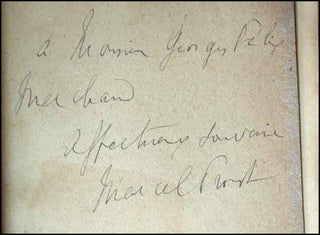 à Monsieur Georges Félix
Marchand
Affectueux souvenir
Marcel Proust